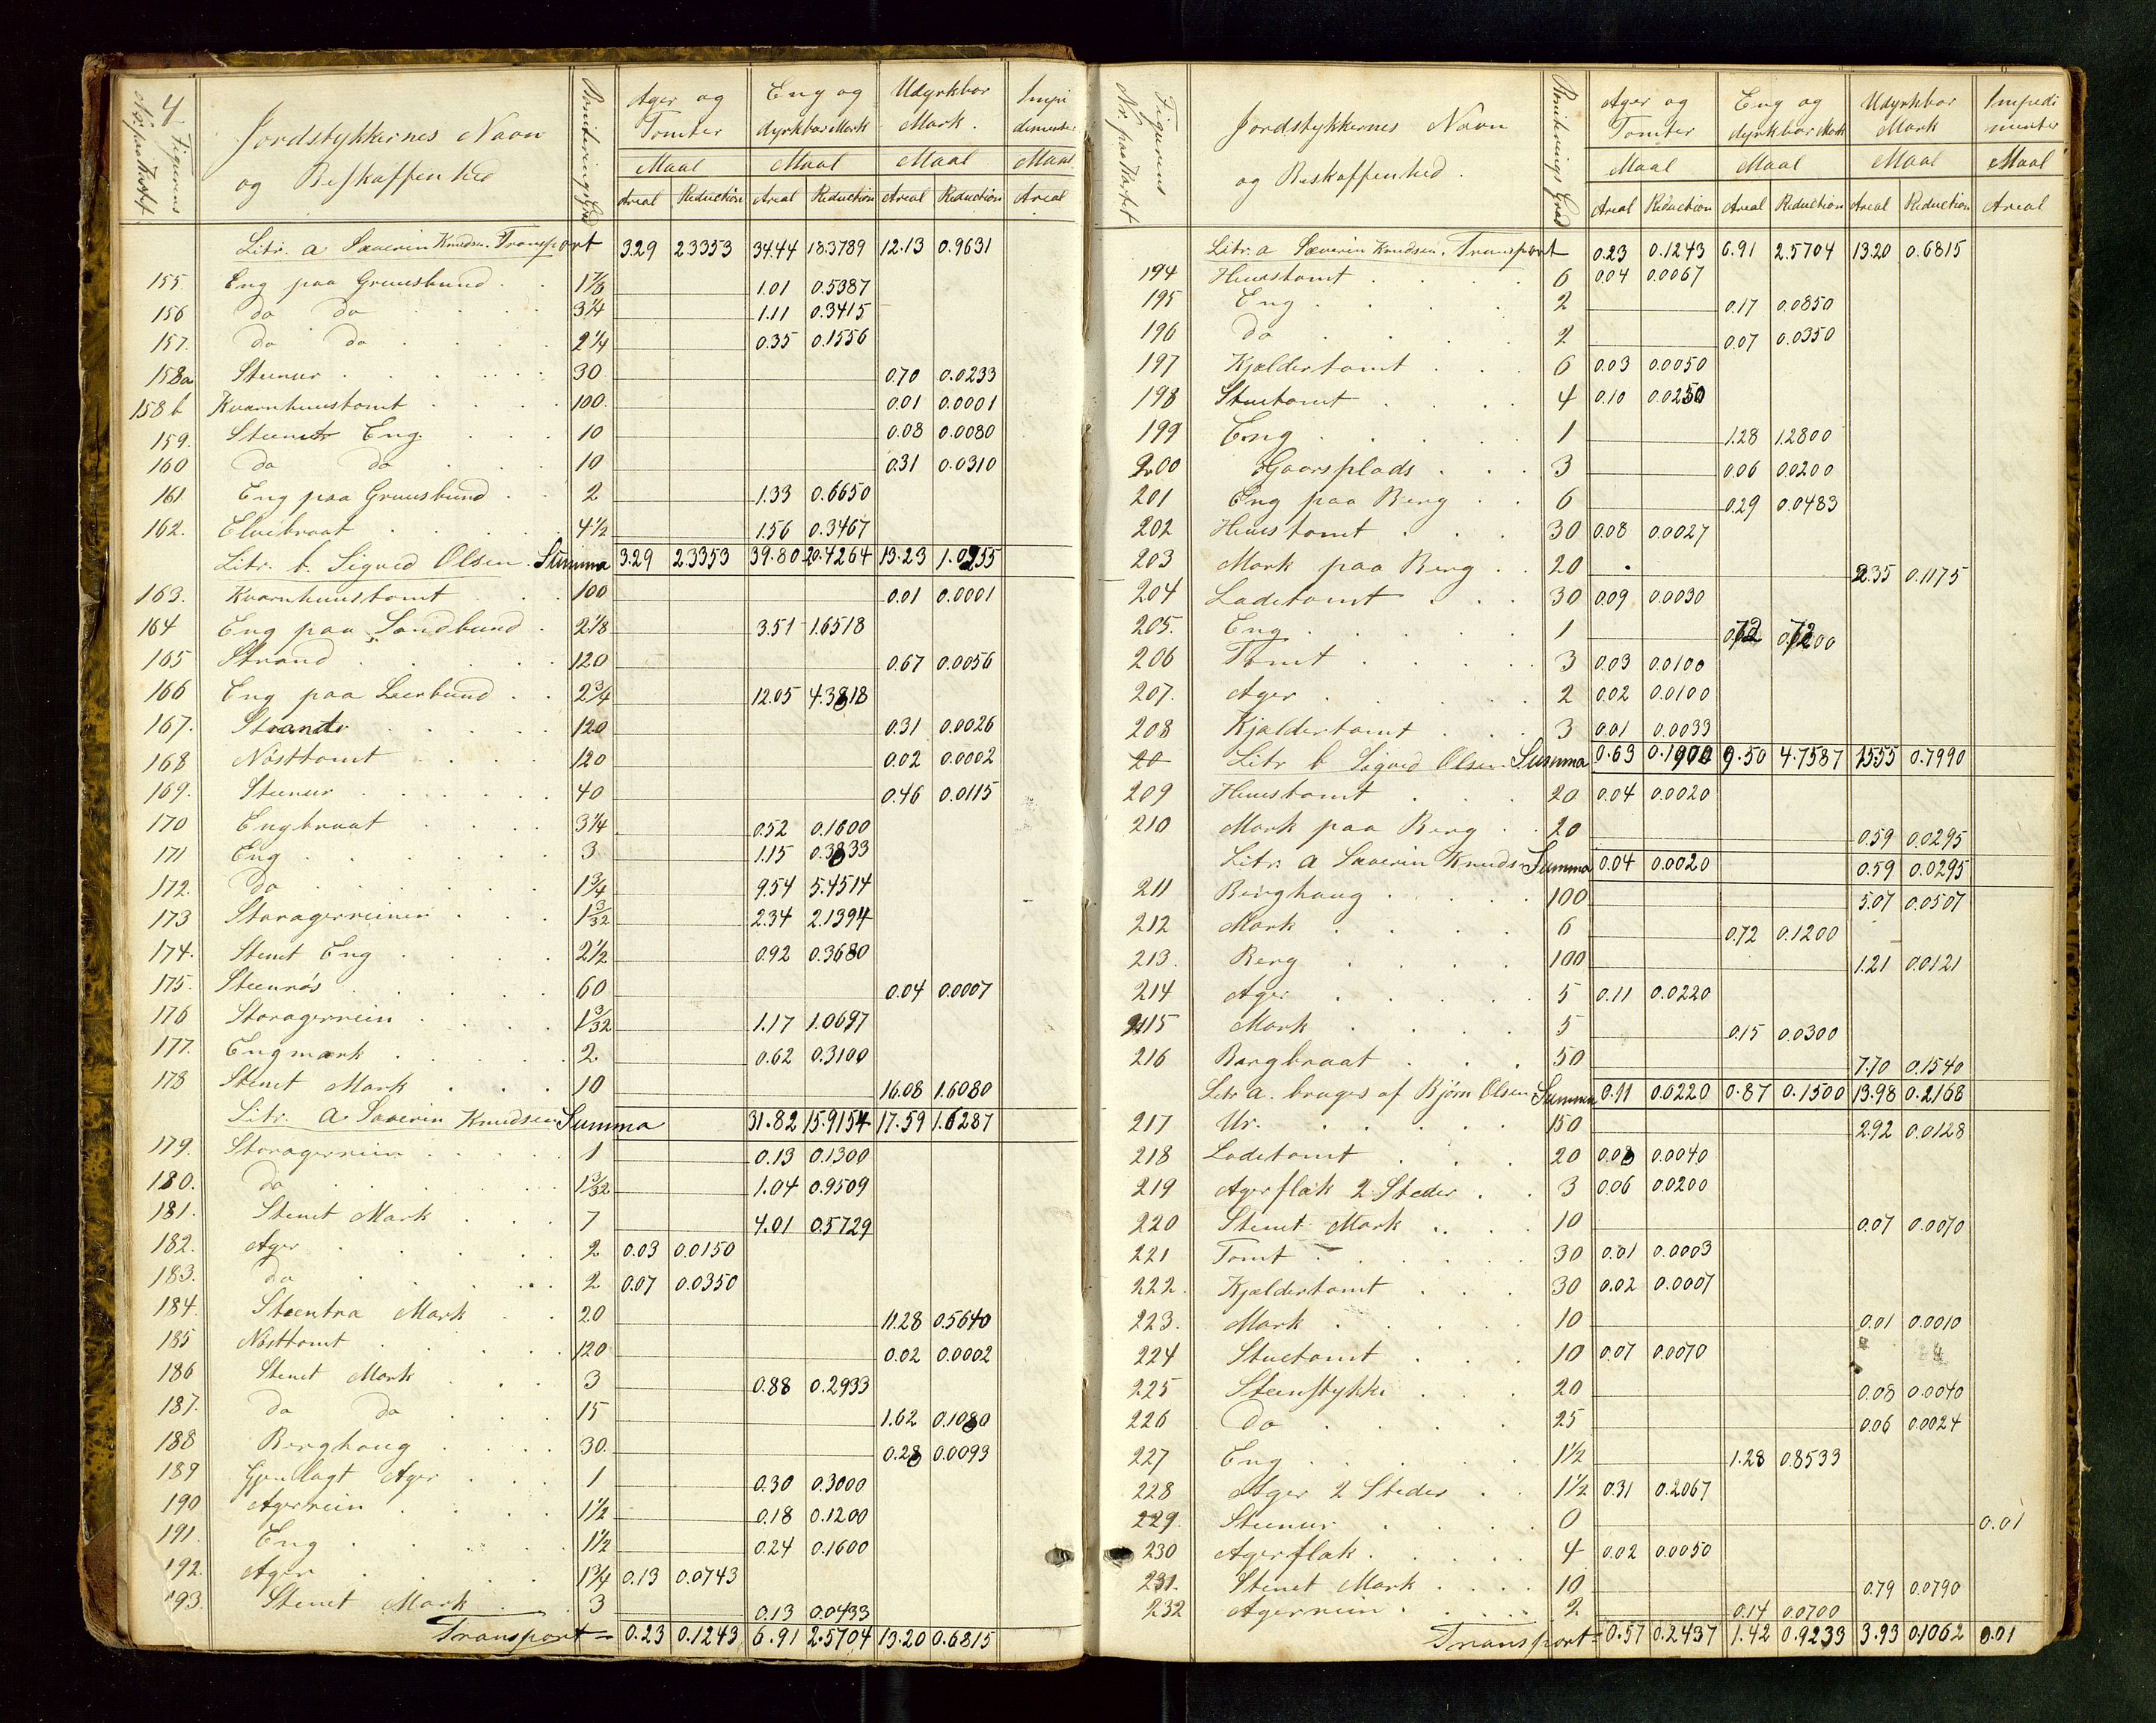 4
Figurens
No. paa Kartet
Jordstykkernes Navn
og Beskaffenhed
Boniterings Grad
Ager og Tomter
Eng og dyrkbar Mark
Udyrkbar Mark.
Impedimenter
Maal Maal Maal Maal
Areal Reduction Areal Reduction Areal Reduction Areal
Litr. a Sæverin Knudsen. Transport 3.29 2.3353 34.44 18.3789 12.13 0.9631
155 Eng paa Gruusbund . . 1 7/8 1.01 0.5387
156 do do 3 1/4 1.11 0.3415
157. do do 2 1/4 0.35 0.1556
158a Steenur 30 0.70 0.0233
158b Kvarnhuustomt 100. 0.01 0.0001
159. Steenet Eng. 10 0.08 0.0080
160 do do 10 0.31 0.0310
161. Eng paa Gruusbund 2 1.33 0.6650
162. Elvebraat 4 1/2 1.56 0.3467
Litr. b. Sigved Olsen. Summa 3.29 2.3353 39.80 20.4264 13.23 1.0255
163. Kvarnhuustomt 100 0.01 0.0001
164 Eng paa Sandbund 2 1/8 3.51 1.6518
165 Strand 120 0.67 0.0056
166 Eng paa Leerbund 2 3/4 12.05 4.3818
167. Strand 120 0.31 0.0026
168 Nösttomt 120 0.02 0.0002
169. Steenur 40 0.46 0.0115
170 Engbraat 3 1/4 0.52 0.1600
171 Eng 3 1.15 0.3833
172. do 1 3/4 9.54 5.4514
173 Storagerreinen 1 3/32 2.34 2.1394
174. Stenet Eng 2 1/2 0.92 0.3680
175. Steenrös 60 0.04 0.0007
176 Storagerrein 1 3/32 1.17 1.0697
177. Engmark 2. 0.62 0.3100
178 Stenet Mark 10 16.08 1.6080
Litr. a Sæverin Knudsen Summa 31.82 15.9154 17.59 1.6287
179. Storagerrein 1 0.13 0.1300
180. do 1 3/32 1.04 0.9509
181. Stenet Mark 7 4.01 0.5729
182. Ager 2 0.03 0.0150
183. do 2 0.07 0.0350
184. Steentra Mark 20 11.28 0.5640
185 Nösttomt 120 0.02 0.0002
186 Stenet Mark 3 0.88 0.2933
187. do do 15 1.62 0.1080
188 Berghaug 30. 0.28 0.0093
189 Gjenlagt Ager 1 0.30 0.3000
190 Agerrein 1 1/2 0.18 0.1200
191. Eng 1 1/2 0.24 0.1600
192. Ager 1 3/4 0.13 0.0743
193. Stenet Mark 3 0.13 0.0433
Transport = 0.23 0.1243 6.91 2.5704 13.20 0.6815
Figurens
Nr. paa Kartet
Jordstykkernes Navn
og Beskaffenhed.
Boniterings Grad
Ager og Tomter
Eng og dyrkbar Mark
Udyrkbar Mark
Impedimenter
Maal Maal Maal Maal
Areal Reduction Areal Reduction Areal Reduction Areal
Litr. a Sæverin Knudsen. Transport 0.23 0.1243 6.91 2.5704 13.20 0.6815
194 Huustomt 6 0.04 0.0067
195 Eng 2 0.17 0.0850
196 do 2 0.07 0.0350
197 Kjældertomt 6 0.03 0.0050
198 Stuetomt 4 0.10 0.0250
199 Eng 1 1.28 1.2800
200 Gaarsplads 3 0.06 0.0200
201 Eng paa Berg 6 0.29 0.0483
202 Huustomt 30 0.08 0.0027
203 Mark paa Berg 20 2.35 0.1175
204 Ladetomt 30 0.09 0.0030
205. Eng 1 0.72 0.7200
206 Tomt 3 0.03 0.0100
207. Ager 2 0.02 0.0100
208 Kjældertomt 3 0.01 0.0033
20 Litr b Sigved Olsen Summa 0.63 0.1900 9.50 4.7587 15.55 0.7990
209 Huustomt 20 0.04 0.0020
210 Mark paa Berg 20 0.59 0.0295
Litr. a Sæverin Knudsen Summa 0.04 0.0020 0.59 0.0295
211 Berghaug 100 5.07 0.0507
212 Mark 6 0.72 0.1200
213. Berg 100 1.21 0.0121
214 Ager 5 0.11 0.0220
215 Mark 5 0.15 0.0300
216 Bergbraat 50 7.70 0.1540
Litr a. bruges af Bjørn Olsen Summa 0.11 0.0220 0.87 0.1500 13.98 0.2168
217 Ur. 150 2.92 0.0128
218 Ladetomt 20 0.08 0.0040
219 Agerflæk 2 Steder 3 0.06 0.0200
220 Stenet Mark 10 0.07 0.0070
221 Tomt 30 0.01 0.0003
222. Kjældertomt 30 0.02 0.0007
223. Mark 10 0.01 0.0010
224 Stuetomt 10 0.07 0.0070
225 Steenstykke 20 0.08 0.0040
226 Do 25 0.06 0.0024
227 Eng 1 1/2 1.28 0.8533
228 Ager 2 Steder 1 1/2 0.31 0.2067
229. Steenur 0 0.01
230 Agerflæk 4 0.02 0.0050
231. Stenet Mark 10 0.79 0.0790
232 Agerrein 2 0.14 0.0700
Transport = 0.57 0.2437 1.42 0.9233 3.93 0.1062 0.01